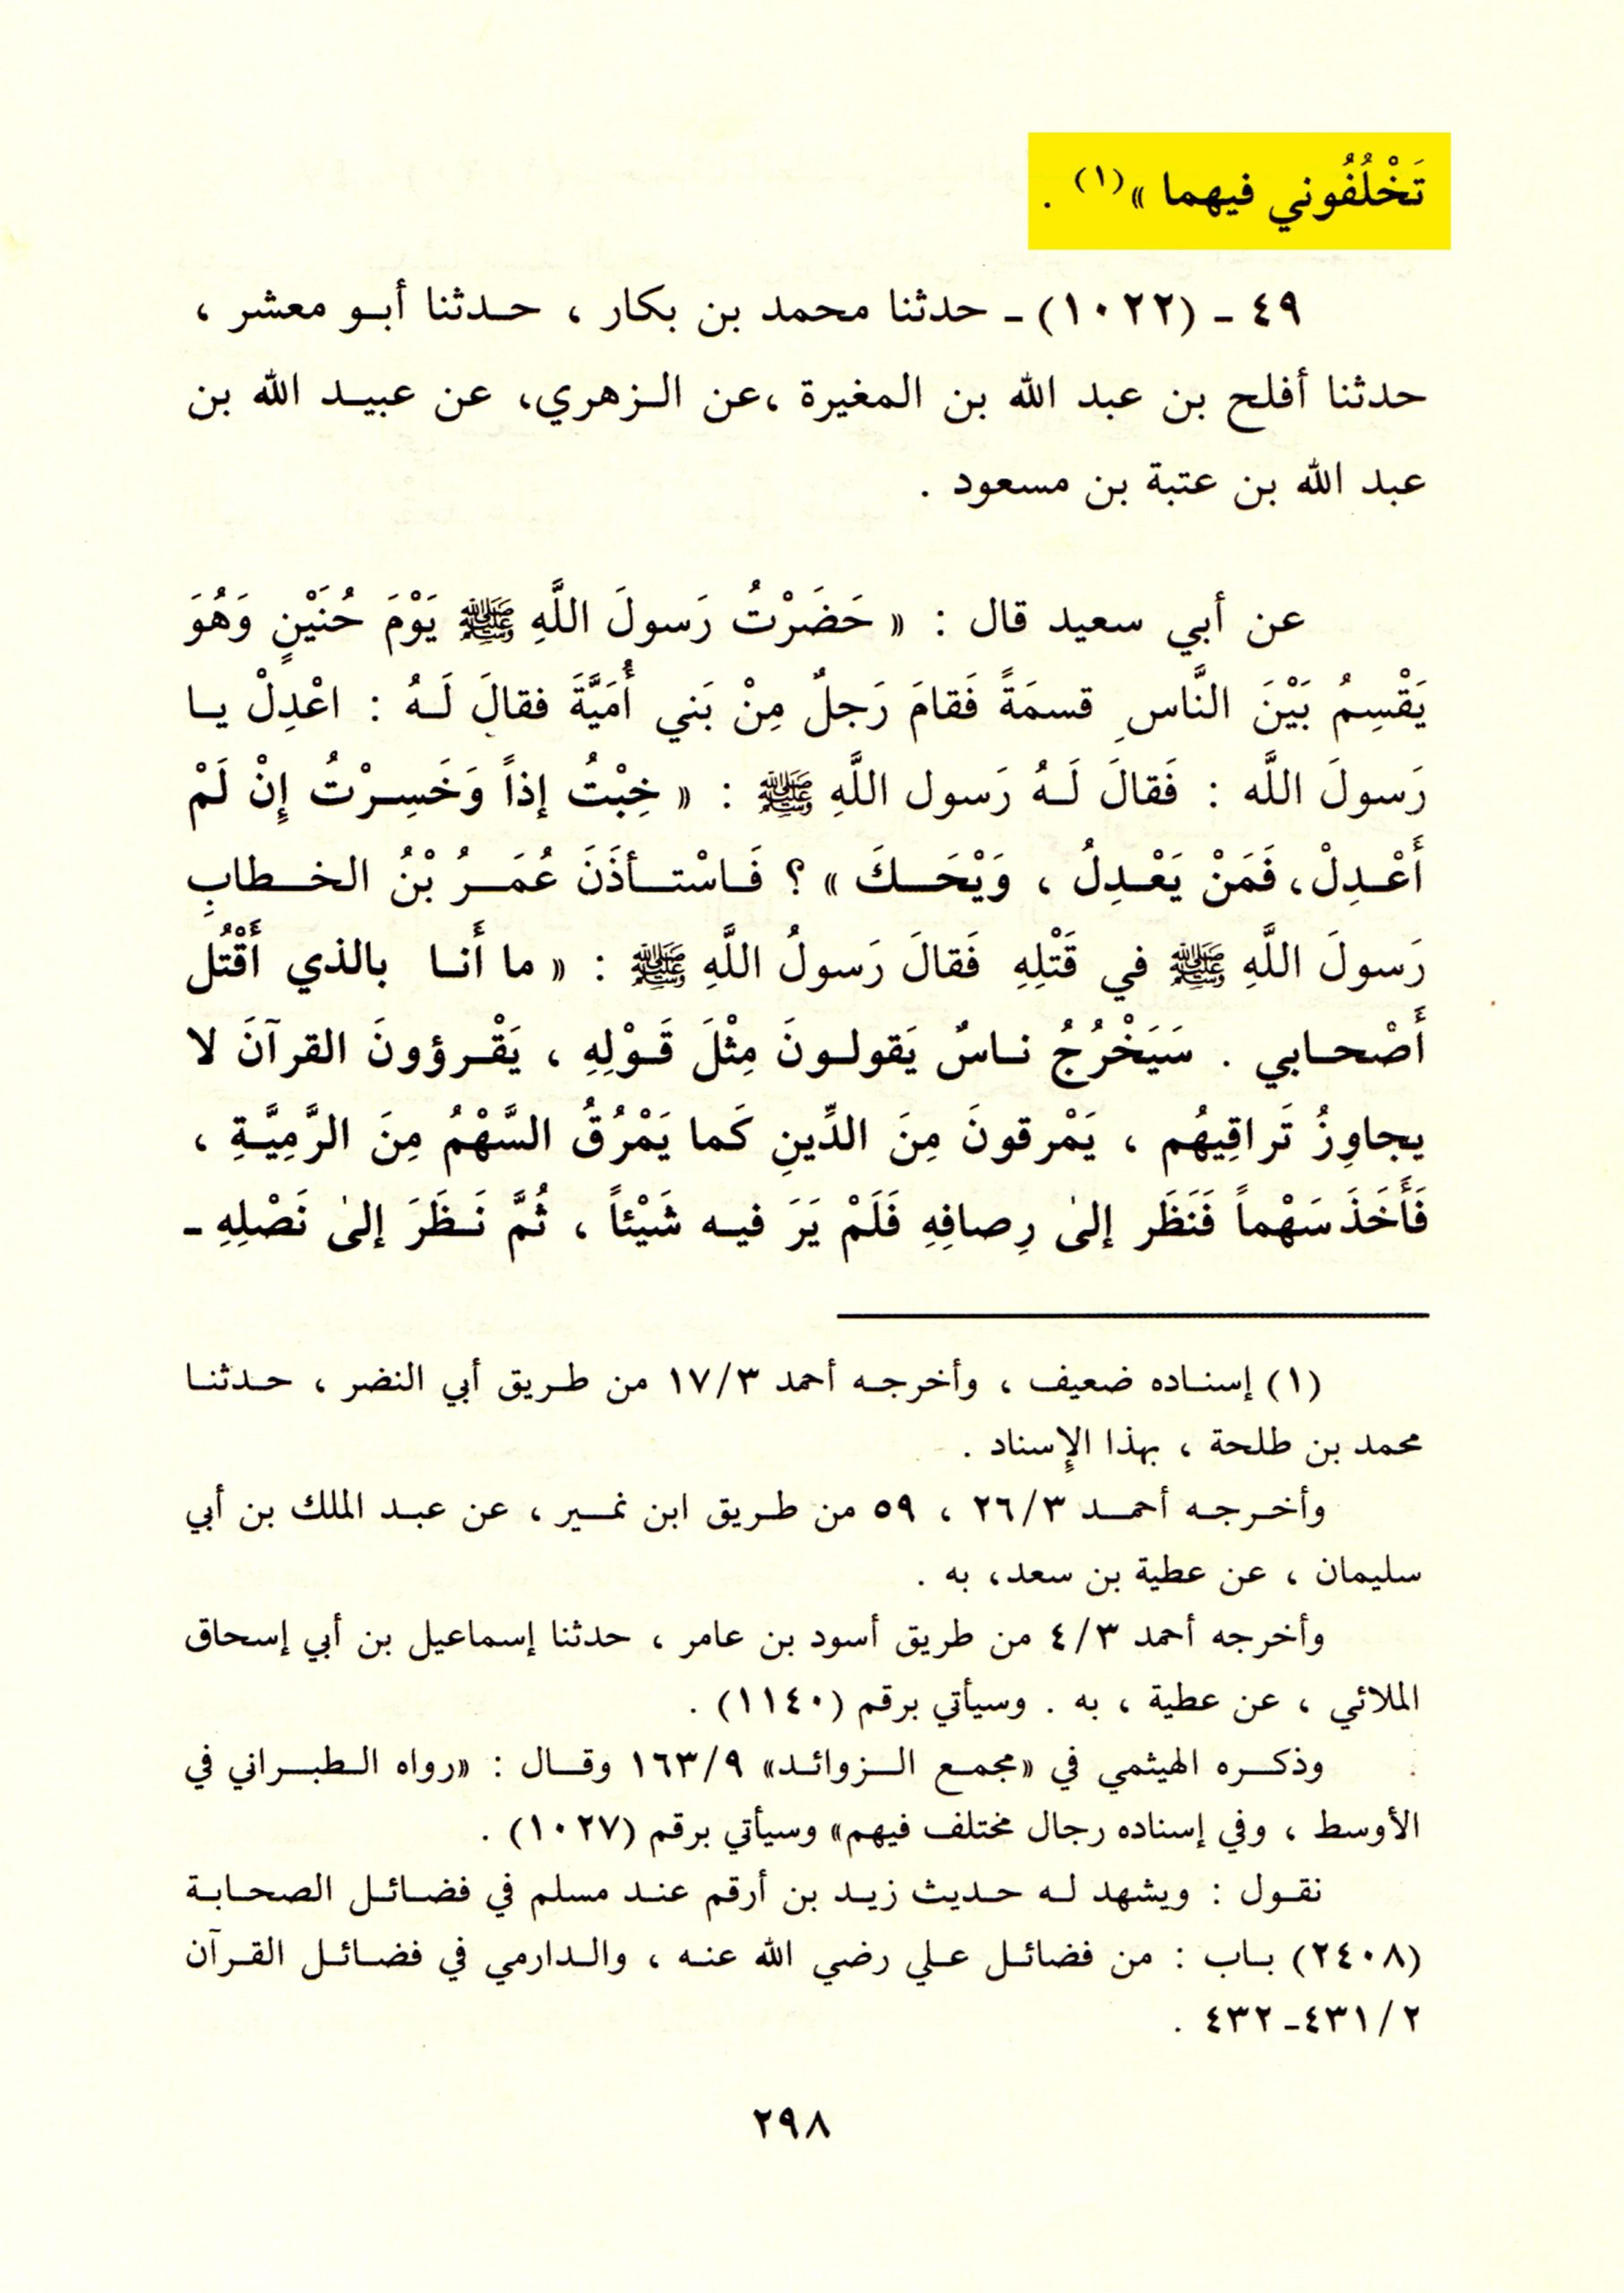 تَخْلُفُوني فيهما »(١) .
٤٩ ـ (١٠٢٢) ـ حدثنا محمد بن بكار ، حـدثنا أبـو معشر ،
حدثنا أفلح بن عبد الله بن المغيرة ،عن الـزهري، عن عبيـد الله بن
عبد الله بن عتبة بن مسعود .
عن أبي سعيد قال : « حَضَرْتُ رَسولَ اللَّهِ ﷺ يَوْمَ حُنَيْنٍ وَهُوَ
يَقْسِمُ بَيْنَ النَّاسِ قسمَةً فَقامَ رَجلٌ مِنْ بَني أُمَيَّةَ فقالَ لَـهُ : اعْدِلْ يـا
رَسولَ اللَّه : فَقالَ لَـهُ رَسول اللَّهِ ﷺ : « خِبْتُ إذاً وَخَسِـرْتُ إِنْ لَمْ
أَعْـدِلْ، فَمَنْ يَعْـدِلُ ، وَيْحَـكَ » ؟ فَـاسْتـأذَنَ عُمَـرُ بْنُ الخـطابِ
رَسولَ اللَّهِ ﷺ في قَتْلِهِ فَقالَ رَسولُ اللَّهِ ﷺ : « ما أَنـا بالذي أَقْتُل
أَصْحـابي . سَيَخْرُجُ نـاسٌ يَقولـونَ مِثْلَ قَـوْلِهِ ، يَقْـرؤونَ القرآنَ لا
يجاوِزُ تَراقِيهُم ، يَمْرقونَ مِنَ الدِّينِ كَما يَمْرُقُ السَّهْمُ مِنَ الرَّمِيَّـةِ ،
فَأَخَذَ سَهْماً فَنَظَر إلىٰ رِصافِهِ فَلَمْ يَرَ فيـه شَيْئاً ، ثُمَّ نَـظَرَ إلىٰ نَصْلِهِ ـ
(١) إسنـاده ضعيف ، وأخرجـه أحمد ١٧/٣ من طـريق أبي النضر ، حـدثنـا
محمد بن طلحة ، بهذا الإِسناد .
وأخـرجـه أحمـد ٢٦/٣ ، ٥٩ من طـريق ابن نمـير ، عن عبـد الملك بن أبي
سليمان ، عن عطية بن سعد، به .
وأخرجه أحمد ٤/٣ من طريق أسود بن عامر ، حدثنا إسماعيل بن أبي إسحاق
الملائي ، عن عطية ، به . وسيأتي برقم (١١٤٠) .
وذكـره الهيثمي في «مجمـع الـزوائـد» ١٦٣/٩ وقـال : «رواه الـطبـراني في
الأوسط ، وفي إسناده رجال مختلف فيهم» وسيأتي برقم (١٠٢٧) .
نقـول : ويشهد لـه حـديث زيـد بن أرقم عنـد مسلم في فضـائـل الصحـابـة
(٢٤٠٨) بـاب : من فضائـل عـلي رضي الله عنـه ، والـدارمي في فضـائـل القـرآن
٤٣١/٢ـ٤٣٢ .
٢٩٨